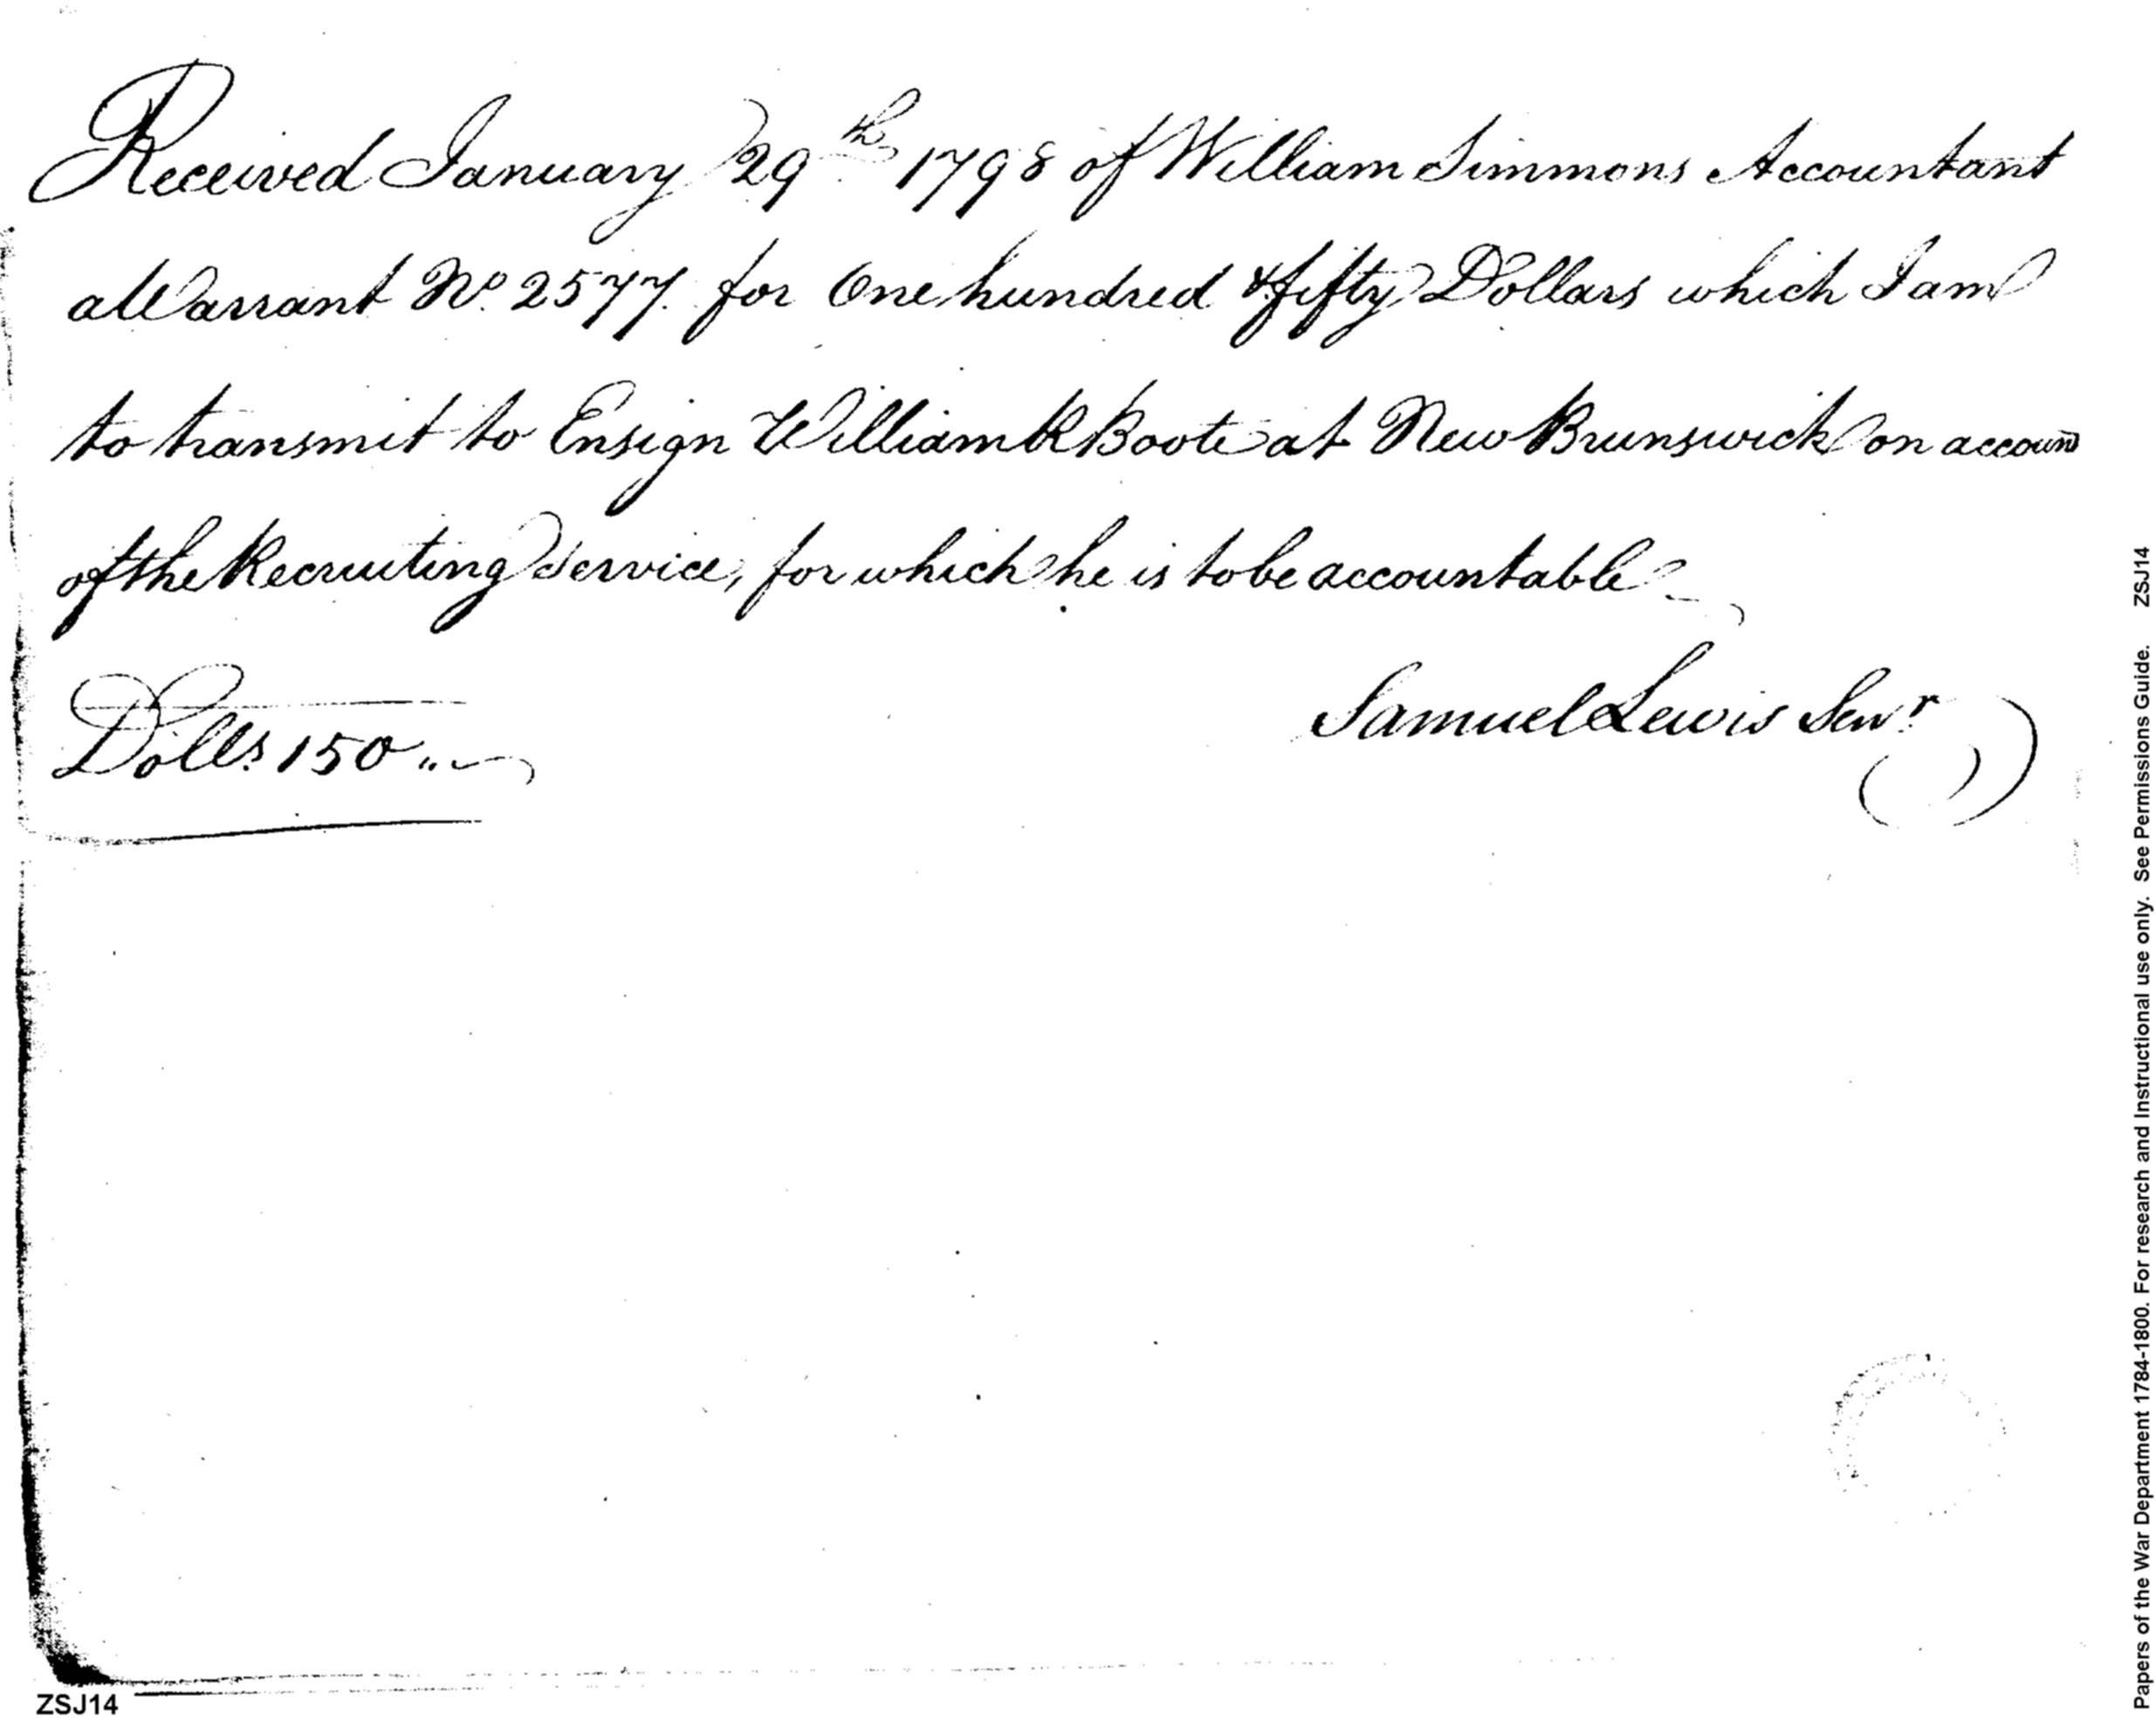 Received January 29th 1798 of William Simmons Accountant
a Warrant No. 2577. for One hundred & fifty Dollars which I am
to transmit to Ensign William K Boote at New Brunswick on accoun
of the Recruiting Service, for which he is to be accountable
Samuel Lewis Senr.
Dolls. 150
ZSJ14
Papers of the War Department 1784-1800. For research and Instructional use only. See Permissions Guide. ZSJ14